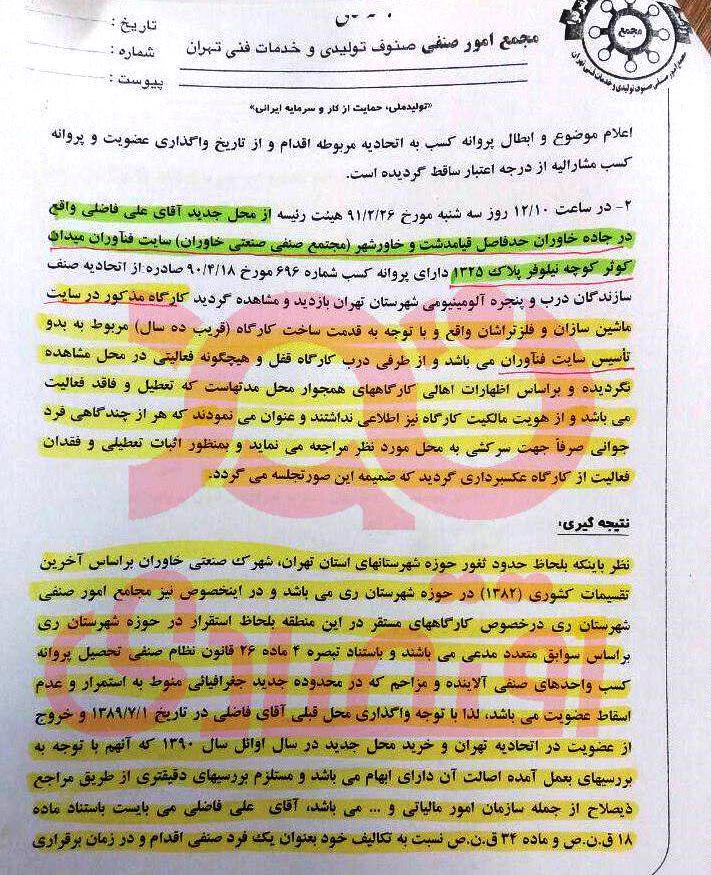 تاریخ :
شماره :
پیوست :
مجمع
مجمع امور صنفی صنوف تولیدی و خدمات فنی تهران
«تولیدملی، حمایت از کار و سرمایه ایرانی»
اعلام موضوع و ابطال پروانه کسب به اتحادیه مربوطه اقدام و از تاریخ واگذاری عضویت و پروانه
کسب مشارالیه از درجه اعتبار ساقط گردیده است.
۲- در ساعت ۱۲/۱۰ روز سه شنبه مورخ ۹۱/۲/۲۶ هیئت رئیسه از محل جدید آقای علی فاضلی واقع
در جاده خاوران حدفاصل قیامدشت و خاورشهر (مجتمع صنفی صنعتی خاوران) سایت فنآوران میدان
کوثر کوچه نیلوفر پلاک ۱۳۲۵ دارای پروانه کسب شماره ۶۹۶ مورخ ۹۰/۴/۱۸ صادره از اتحادیه صنف
سازندگان درب و پنجره آلومینیومی شهرستان تهران بازدید و مشاهده گردید کارگاه مذکور در سایت
ماشین سازان و فلزتراشان واقع و با توجه به قدمت ساخت کارگاه (قریب ده سال) مربوط به بدو
تأسیس سایت فنآوران می باشد و از طرفی درب کارگاه قفل و هیچگونه فعالیتی در محل مشاهده
نگردیده و براساس اظهارات اهالی کارگاههای همجوار محل مدتهاست که تعطیل و فاقد فعالیت
می باشد و از هویت مالکیت کارگاه نیز اطلاعی نداشتند و عنوان می نمودند که هر از چندگاهی فرد
جوانی صرفاً جهت سرکشی به محل مورد نظر مراجعه می نماید و بمنظور اثبات تعطیلی و فقدان
فعالیت از کارگاه عکسبرداری گردید که ضمیمه این صورتجلسه می گردد.
نتیجه گیری:
نظر باینکه بلحاظ حدود ثغور حوزه شهرستانهای استان تهران، شهرک صنعتی خاوران براساس آخرین
تقسیمات کشوری (۱۳۸۲) در حوزه شهرستان ری می باشد و در اینخصوص نیز مجامع امور صنفی
شهرستان ری درخصوص کارگاههای مستقر در این منطقه بلحاظ استقرار در حوزه شهرستان ری
براساس سوابق متعدد مدعی می باشند و باستناد تبصره ۴ ماده ۲۶ قانون نظام صنفی تحصیل پروانه
کسب واحدهای صنفی آلاینده و مزاحم که در محدوده جدید جغرافیائی منوط به استمرار و عدم
اسقاط عضویت می باشد، لذا با توجه واگذاری محل قبلی آقای فاضلی در تاریخ ۱۳۸۹/۷/۱ و خروج
از عضویت در اتحادیه تهران و خرید محل جدید در سال اوائل سال ۱۳۹۰ که آنهم با توجه به
بررسیهای بعمل آمده اصالت آن دارای ابهام می باشد و مستلزم بررسیهای دقیقتری از طریق مراجع
ذیصلاح از جمله سازمان امور مالیاتی و ... می باشد، آقای علی فاضلی می بایست باستناد ماده
۱۸ ق.ن.ص و ماده ۳۴ ق.ن.ص نسبت به تکالیف خود بعنوان یک فرد صنفی اقدام و در زمان برقراری